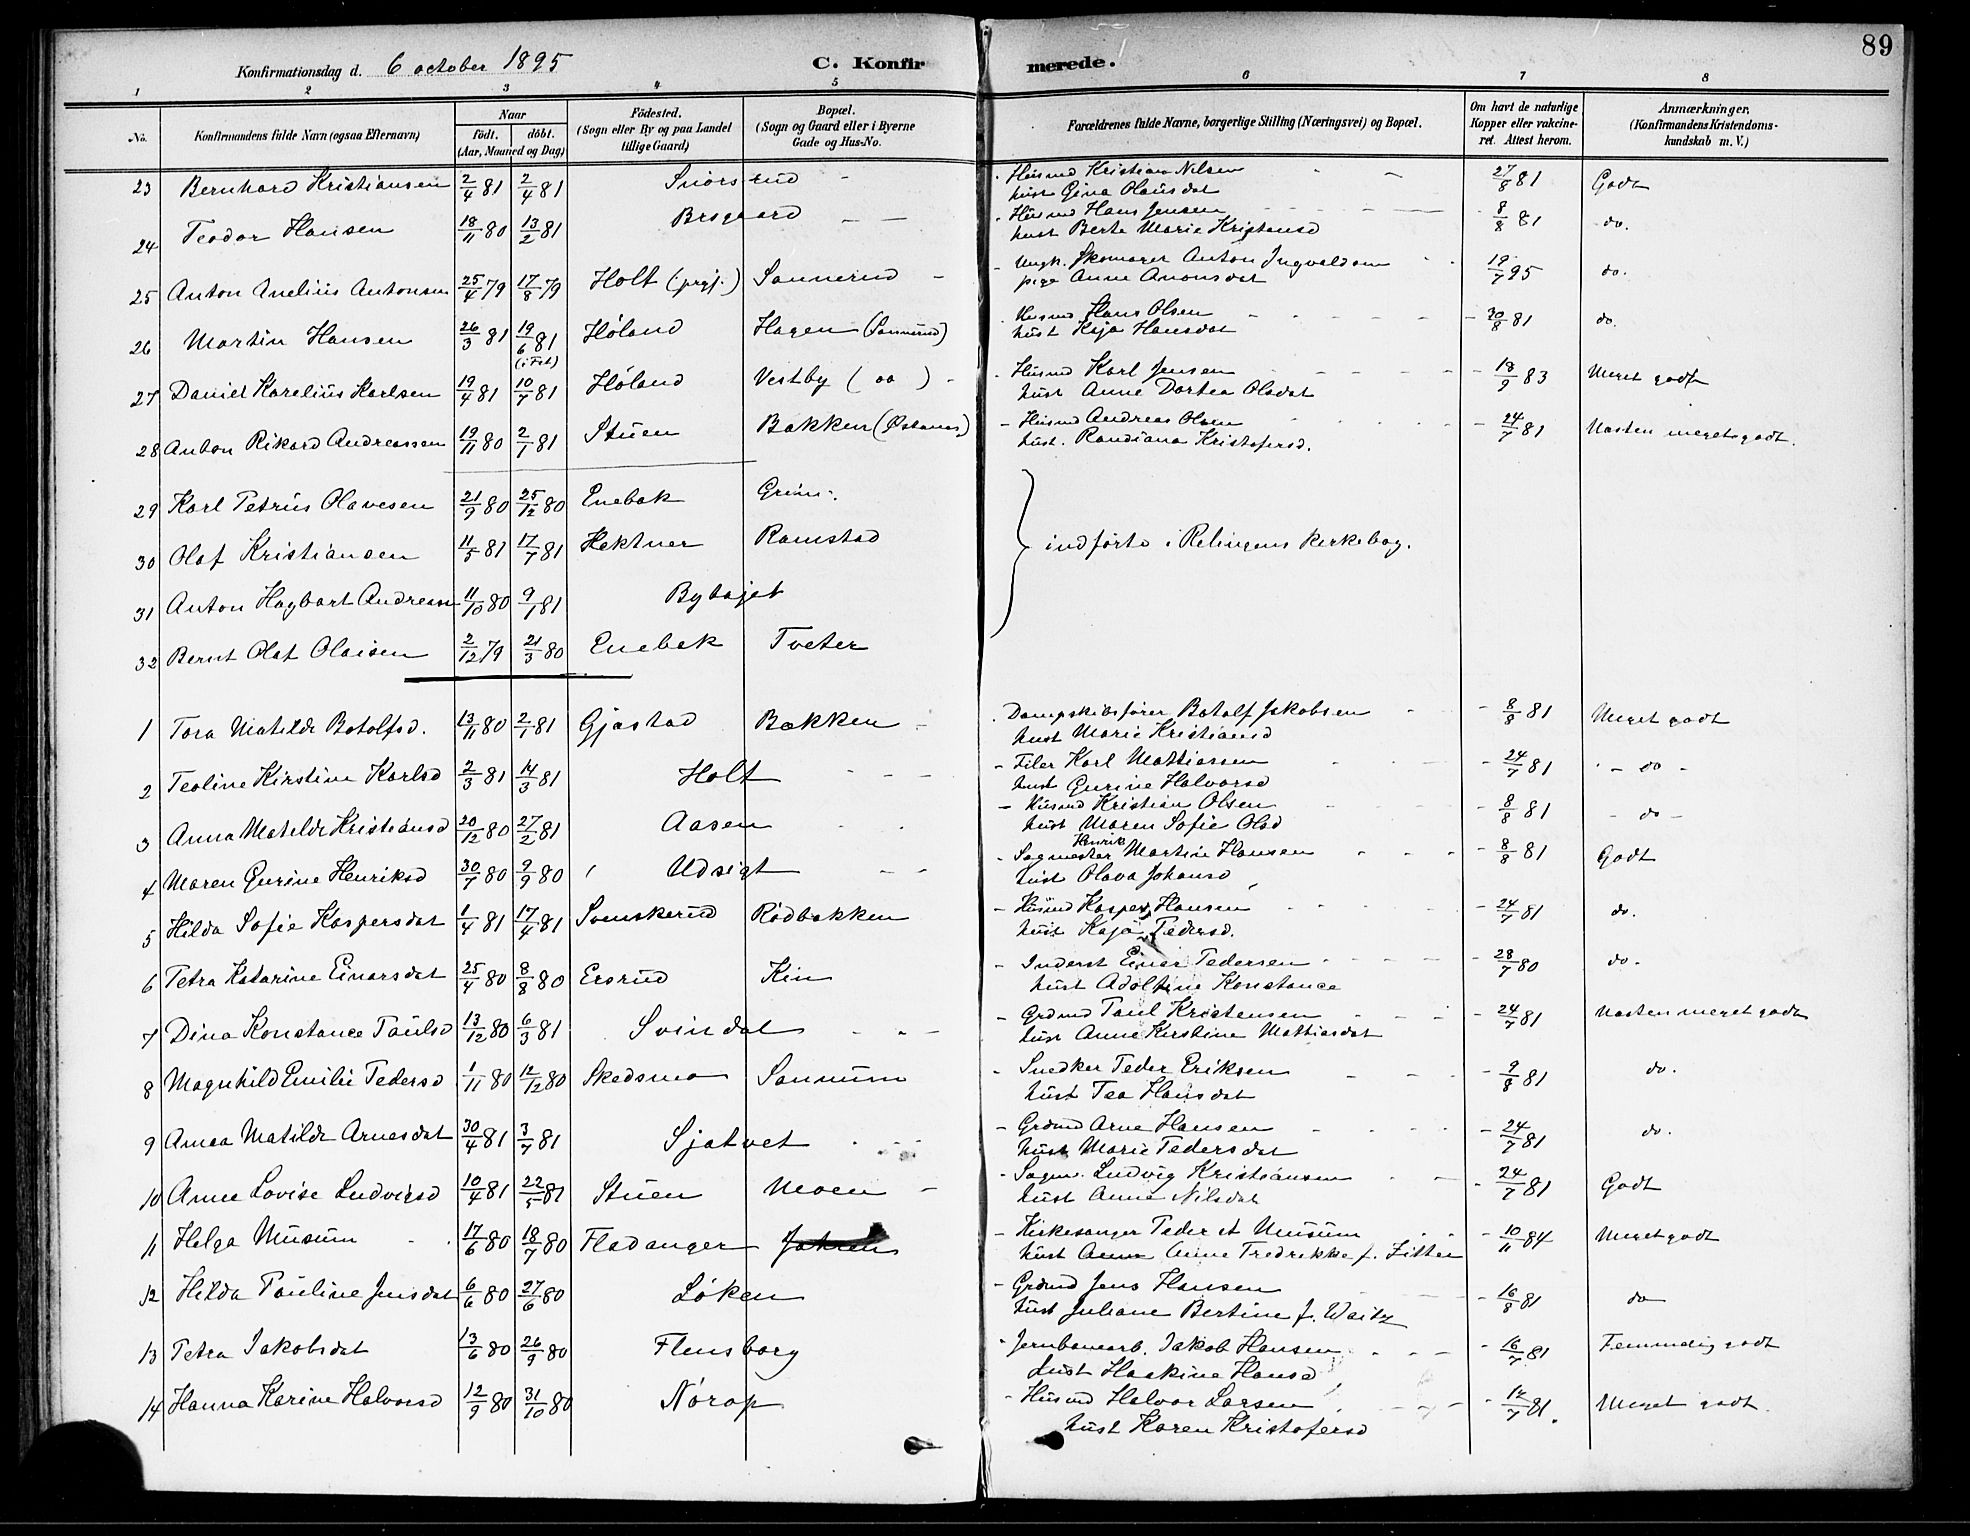 89
Konfirmationsdag d. 6 october 1895 C. Konfirmerede.
1 2 3 4 5 6 7 8
No. Konfirmandens fulde Navn (ogsaa Efternavn) Naar født. døbt. (Aar, Maaned og Dag) Födested. (Sogn eller By og paa Landet tillige Gaard) Bopæl. (Sogn og Gaard eller i Byerne Gade og Hus-No. Forældrenes fulde Navne, borgerlige Stilling (Næringsvei) og Bopæl. Om havt de naturlige Kopper eller vakcineret. Attest herom. Anmærkninger, (Konfirmandens Kristendomskundskab m. V.)
23 Bernhard Kristiansen 2/4 81 2/4 81 Husmd Kristian Nilsen 27/8 81 Godt
hust Gina Olausdat
24 Teodor Hansen 18/11 80 13/2 81 Husmd Hans Jensen 8/8 81 do.
hust Berte Marie Kristensd
25 Anton Anelius Antonsen 25/4 79 17/8 79 Holt (prgj.) Sannerud Ungk. Skomager Anton Ingvaldsen 19/7 95 do.
pige Anne Anonsdat
26 Martin Hansen 26/3 81 19/6 81 (i Fet) Høland Hagen (Sannerud) Husmd Hans Olsen 30/8 81 do.
hust Kaja Hansdat
27 Daniel Karelius Karlsen 19/4 81 10/7 81 Høland Vestby ( oo ) Husmd Karl Jensen 18/9 83 Meget godt
hust Anne Dortea Olsdat
28 Anton Rikard Andreassen 19/11 80 2/1 81 Stuen Bakken Husmd Andreas Olsen 24/7 81 Næsten meget godt.
hust. Randiana Kristofersd.
29 Karl Petrus Olavesen 21/9 80 25/12 80 Enebak
30 Olaf Kristiansen 11/5 81 17/7 81 Hektner Ramstad indførte i Relingens Kirkebog.
31 Anton Hagbart Andreasn 11/10 80 9/1 81
32 Bernt Olaf Olaisen 2/12 79 21/3 80 Enebak Tveter
1 Tora Matilde Botolfsd. 13/11 80 2/1 81 Gjæstad Bakken Dampskibsfører Botolf Jakobsen 8/8 81 Meget godt
hust Marie Kristiansd
2 Teoline Kirstine Karlsd 2/3 81 14/3 81 Holt Filer Karl Mattiasen 24/7 81 do
hust Gurine Halvorsd
3 Anna Matilde Kristiansd 20/12 80 27/2 81 Aasen Husmd Kristian Olsen 8/8 81 do
hust Maren Sofie Olsd
4 Maren Gurine Henriksd 30/7 80 9/9 80 Udsigt Sagmester Henrik Martin Hansen 8/8 81 Godt
hust Olava Johansd
5 Hilda Sofie Kaspersdat 1/4 81 17/4 81 Svenskerud Rødbakken Husmd Kasper Hansen 24/7 81 do.
hust Kaja Pedersd.
6 Petra Katarine Einarsdat 25/4 80 8/8 80 Ersrud Kin Inderst Einar Pedersen 28/7 80 do.
hust Adoltine Konstance
7 Dina Konstance Paulsd 13/12 80 6/3 81 Svindal Grdmd Paul Kristensen 24/7 81 Næsten meget godt
hust Anne Kirstine Mattiasdat
8 Magnhild Emilie Pedersd 1/11 80 12/12 80 Skedsmo Sannum Snedker Peder Eriksen 9/8 81 do.
hust Tea Hansdat
9 Anna Matilde Arnesdat 30/4 81 3/7 81 Sjatvet Grdmd Arne Hansen 24/7 81 do.
hust Marie Pedersdat
10 Anna Lovise Ludvigsd 10/4 81 22/5 81 Stuen Moen Sagm. Ludvig Kristiansen 24/7 81 Godt
hust Anne Nilsdat
11 Helga Musum 17/6 80 18/7 80 Fladanger Kirkesanger Peder A Musum 10/11 84 Meget godt
hust Anne Fredrikke f. Zitter
12 Hilda Pauline Jensdat 6/6 80 27/6 80 Løken Grdmd Jens Hansen 16/8 81 do
hust Juliane Bertine f. Waitz
13 Petra Jakobsdat 13/6 80 26/9 80 Flensborg Jernbanearb. Jakob Hansen 16/7 81 godt
hust Haakine Hansd
14 Hanna Karine Halvorsd 12/9 80 31/10 80 Nørop Husmd Halvor Larsen 12/7 81 Meget godt.
hust Karen Kristofersd